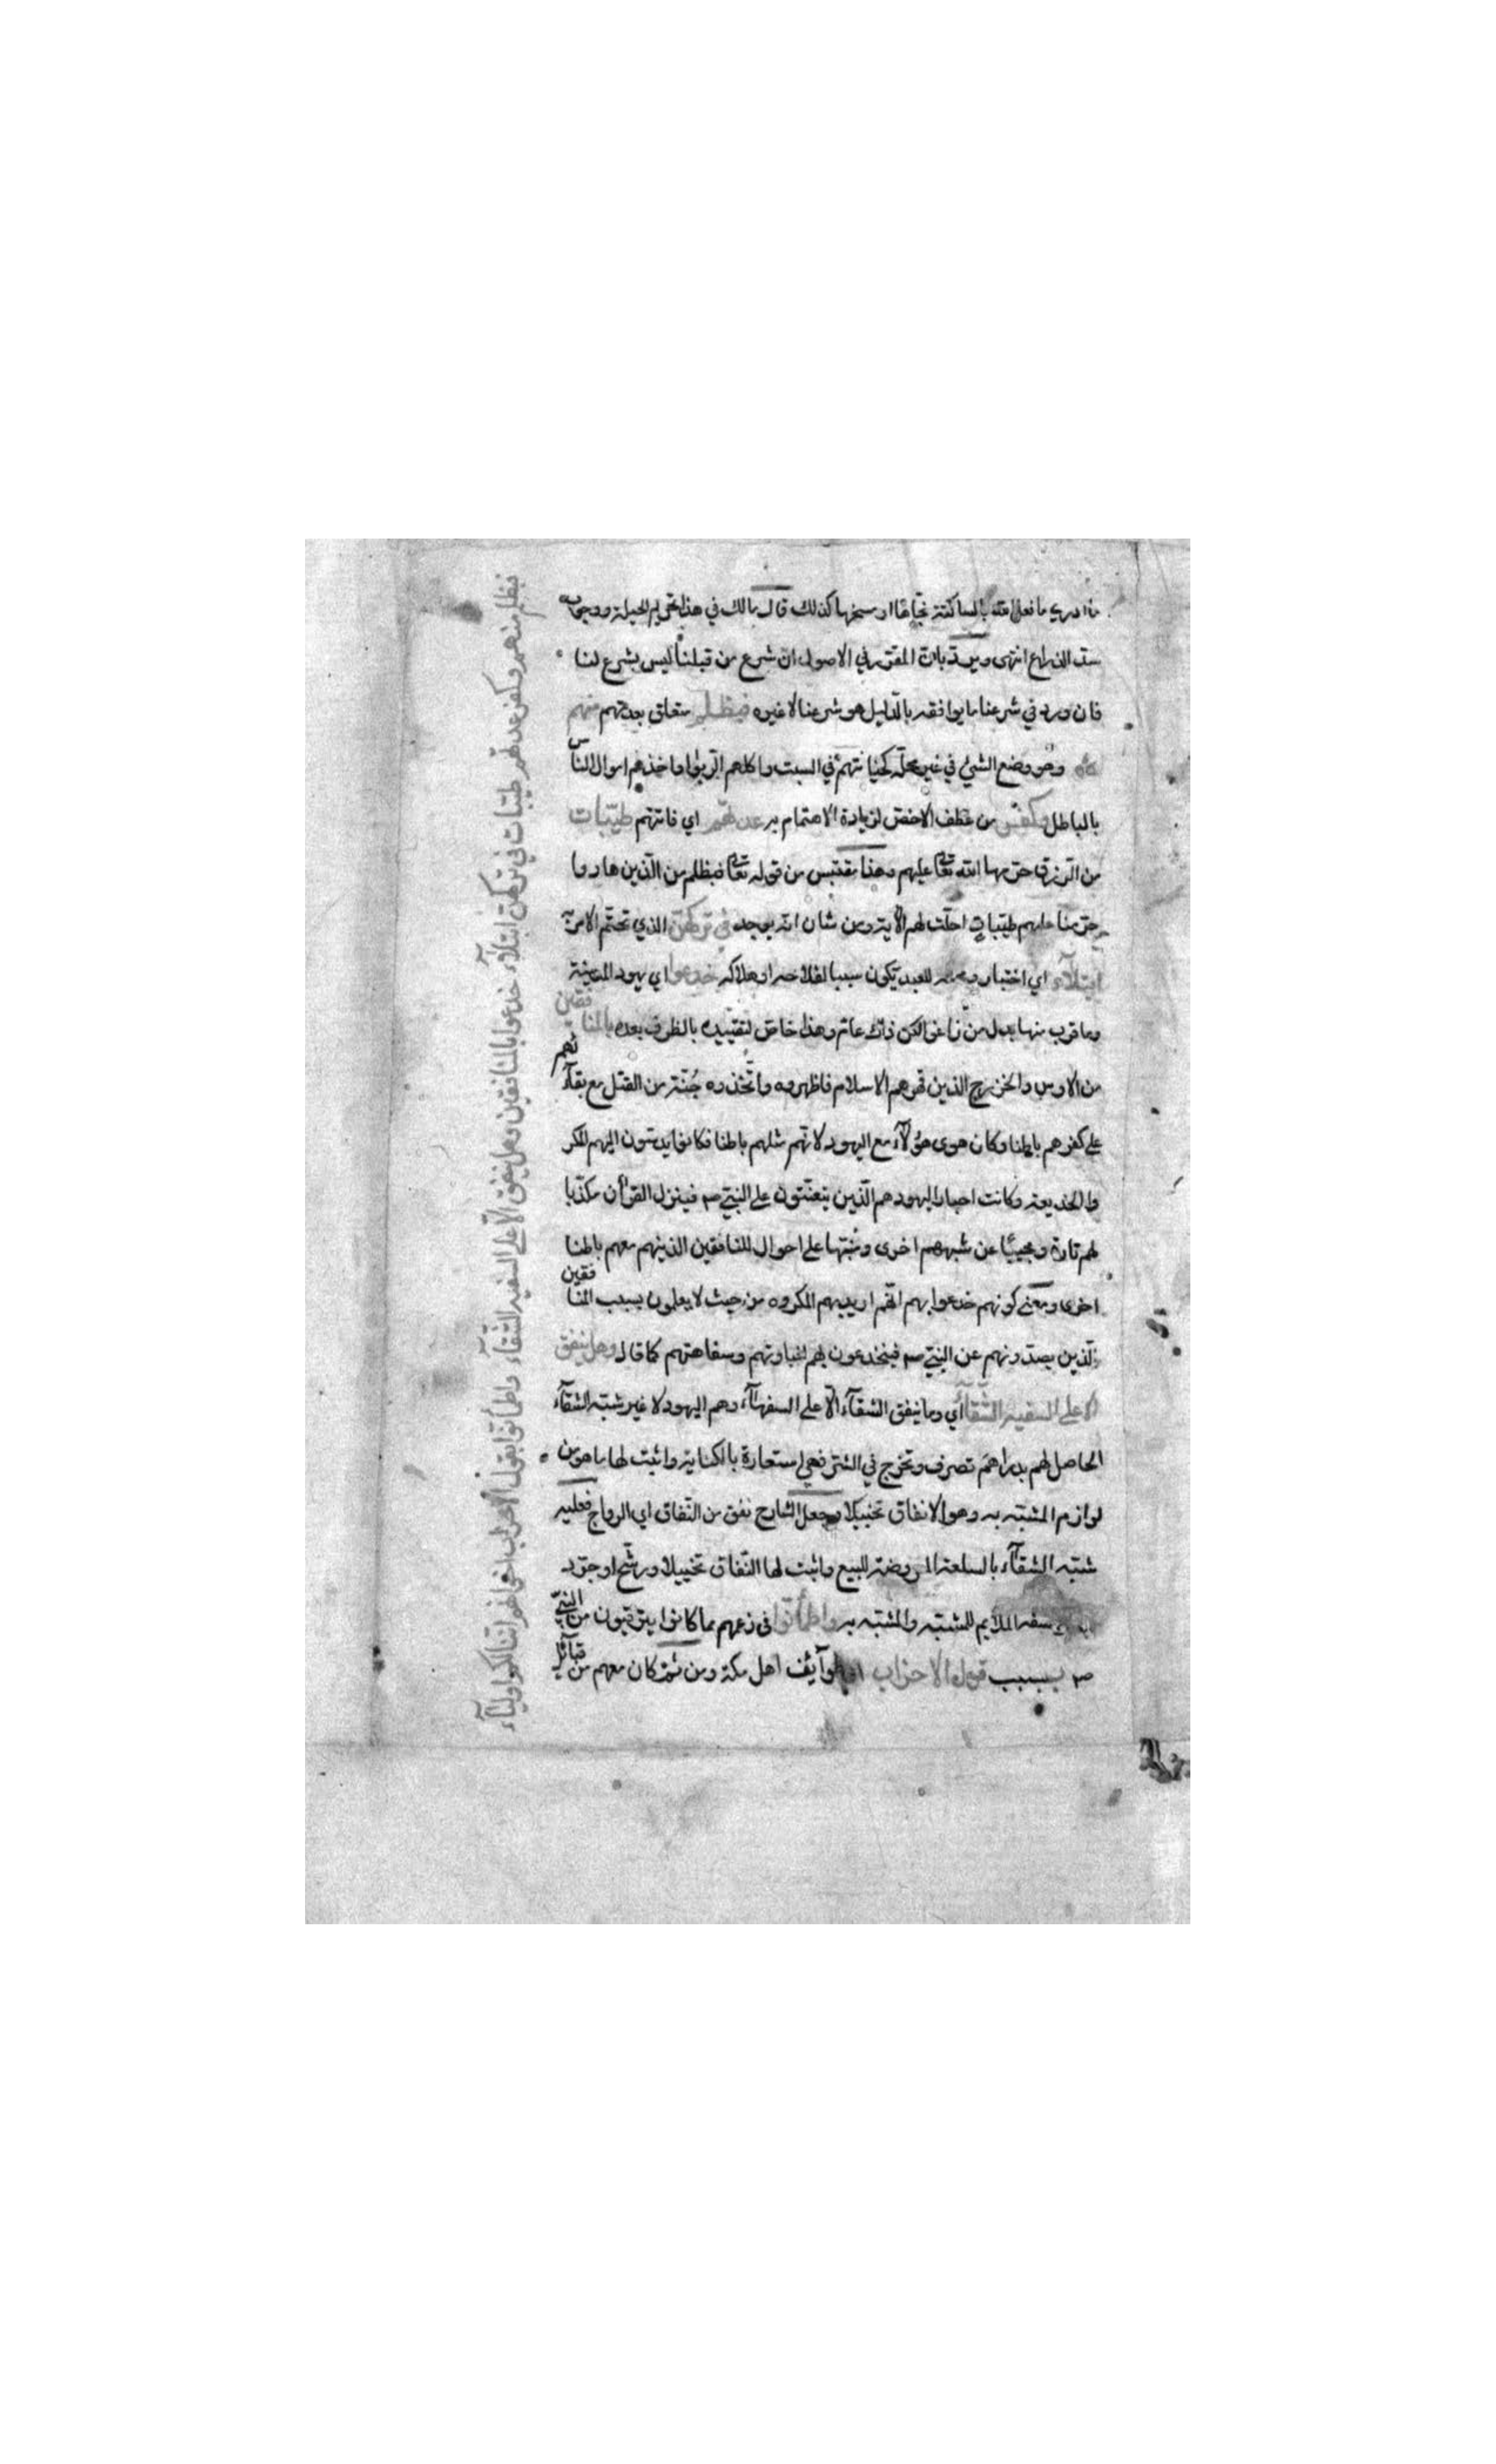 ما ادري ما فعل الله بالساكتة نجاها او مسخها كذلك قال مالك في هذا تحريم الحيلة ووجوب
سد الذرايع انتهى ويرد بان المقرر في الاصول ان شرع من قبلنا ليس بشرع لنا
فان ورد في شرعنا ما يوافقه بالدليل هو شرعنا لا غيره فبظلم متعلق بعدتهم منهم
وهو وضع الشئ في غير محله كخيانتهم في السبت واكلهم الربوا واخذهم اموال الناس
بالباطل وكفر من عطف الاخص لزيادة الاهتمام به عدتهم اي فاتتهم طيبات
من الرزق حرمها الله تعالى عليهم وهذا مقتبس من قوله تعالى فبظلم من الذين هادوا
حرمنا عليهم طيبات احلت لهم الآية ومن شان انه يوجد في تركهن الذي تحتم الامر به
ابتلاء اي اختبار للعبد يكون سببا لفلاحه او هلاكه خدعوا اي يهود المدينة
وما قرب منها بدل من زاغوا لكن ذاك عام وهذا خاص لتقييده بالظرف بعده بالمنافقين
من الاوس والخزرج الذين قهرهم الاسلام فاظهروه واتخذوه جنة من القتل مع بقآئهم
على كفرهم باطنا وكان هوى هؤلآء مع اليهود لانهم مثلهم باطنا فكانوا يدسون اليهم المكر
والخديعة وكانت احبار اليهود هم الذين يتعنتون على النبي صم فينزل القرآن مكذبا
لهم تارة ومجيبا عن شبههم اخرى ومنبها على احوال المنافقين الذينهم معهم باطنا
اخرى ومعنى كونهم خدعوا بهم انهم اريد بهم المكروه من حيث لا يعلمون بسبب المنافقين
الذين يصدونهم عن النبي صم فينخدعون لهم لغباوتهم وسفاهتهم كما قال وهل ينفق
الا على السفيه الشقآء اي وما ينفق الشقآء الا على السفهآء وهم اليهود لا غير شبه الشقآء
الحاصل لهم بدراهم تصرف وتخرج في الشر فهي استعارة بالكناية واثبت لها ما هو من
لوازم المشبه به وهو الانفاق تخييلا وجعل الشارح نفق من النفاق اي الرواج فعليه
شبه الشقآء بالسلعة المعروضة للبيع واثبت لها النفاق تخييلا ورشح او جرد
بذكر السفه الملايم للمشبه والمشبه به واطمأنوا في زعمهم بما كانوا يترقبون من النبي
صم بسبب قول الاحزاب طوآئف اهل مكة ومن ثمة كان معهم من قبآئل
فبظلم منهم وكفر عدتهم طيبات في تركهن ابتلآء خدعوا بالمنافقين وهل ينفق الا على السفيه الشقآء واطمأنوا بقول الاحزاب اخوانهم اننا لكم اوليآء